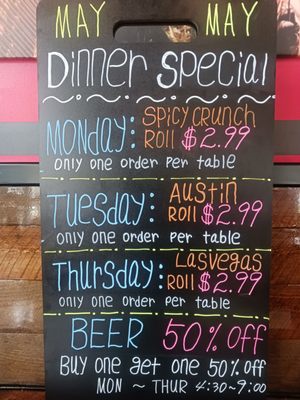 MAY MAY
Dinner Special
MONDAY: SPICY CRUNCH
ROLL $2.99
only one order per table
Tuesday: AUSTIN
ROLL $2.99
only one order per table
Thursday: LASVEGAS
ROLL $2.99
only one order per table
BEER 50% off
BUY one get one 50% off
MON ~ THUR 4:30~9:00